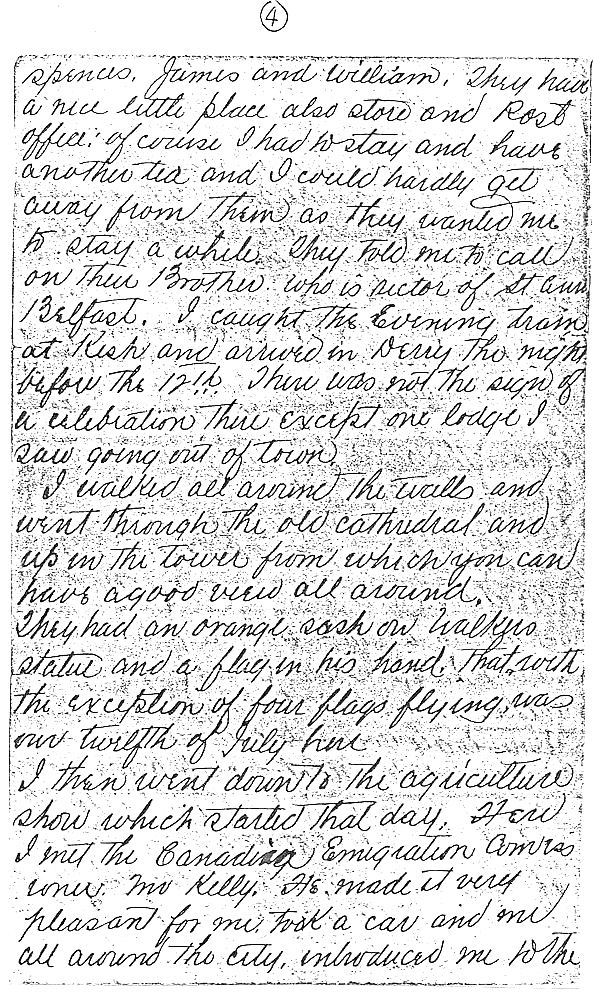 ④
spences. James and William. They have
a nice little place also store and Post
office: of course I had to stay and have
another tea and I could hardly get
away from them as they wanted me
to stay a while. They told me to call
on their Brother who is rector of St Anns
Belfast. I caught the Evening train
at Kesh and arrived in Derry the night
before the 12th. There was not the sign of
a celebration there except one lodge I
saw going out of town.
I walked all around the walls and
went through the old cathedral and
up in the tower from which you can
have a good view all around.
They had an orange sash on Walkers
statue and a flag in his hand. That with
the exception of four flags flying, was
our twelfth of July here
I then went down to the agriculture
show which started that day. Here
I met the Canadian Emigration Commiss
ioner. Mr Kelly. He made it very
pleasant for me. took a car and me
all around the city, introduced me to the